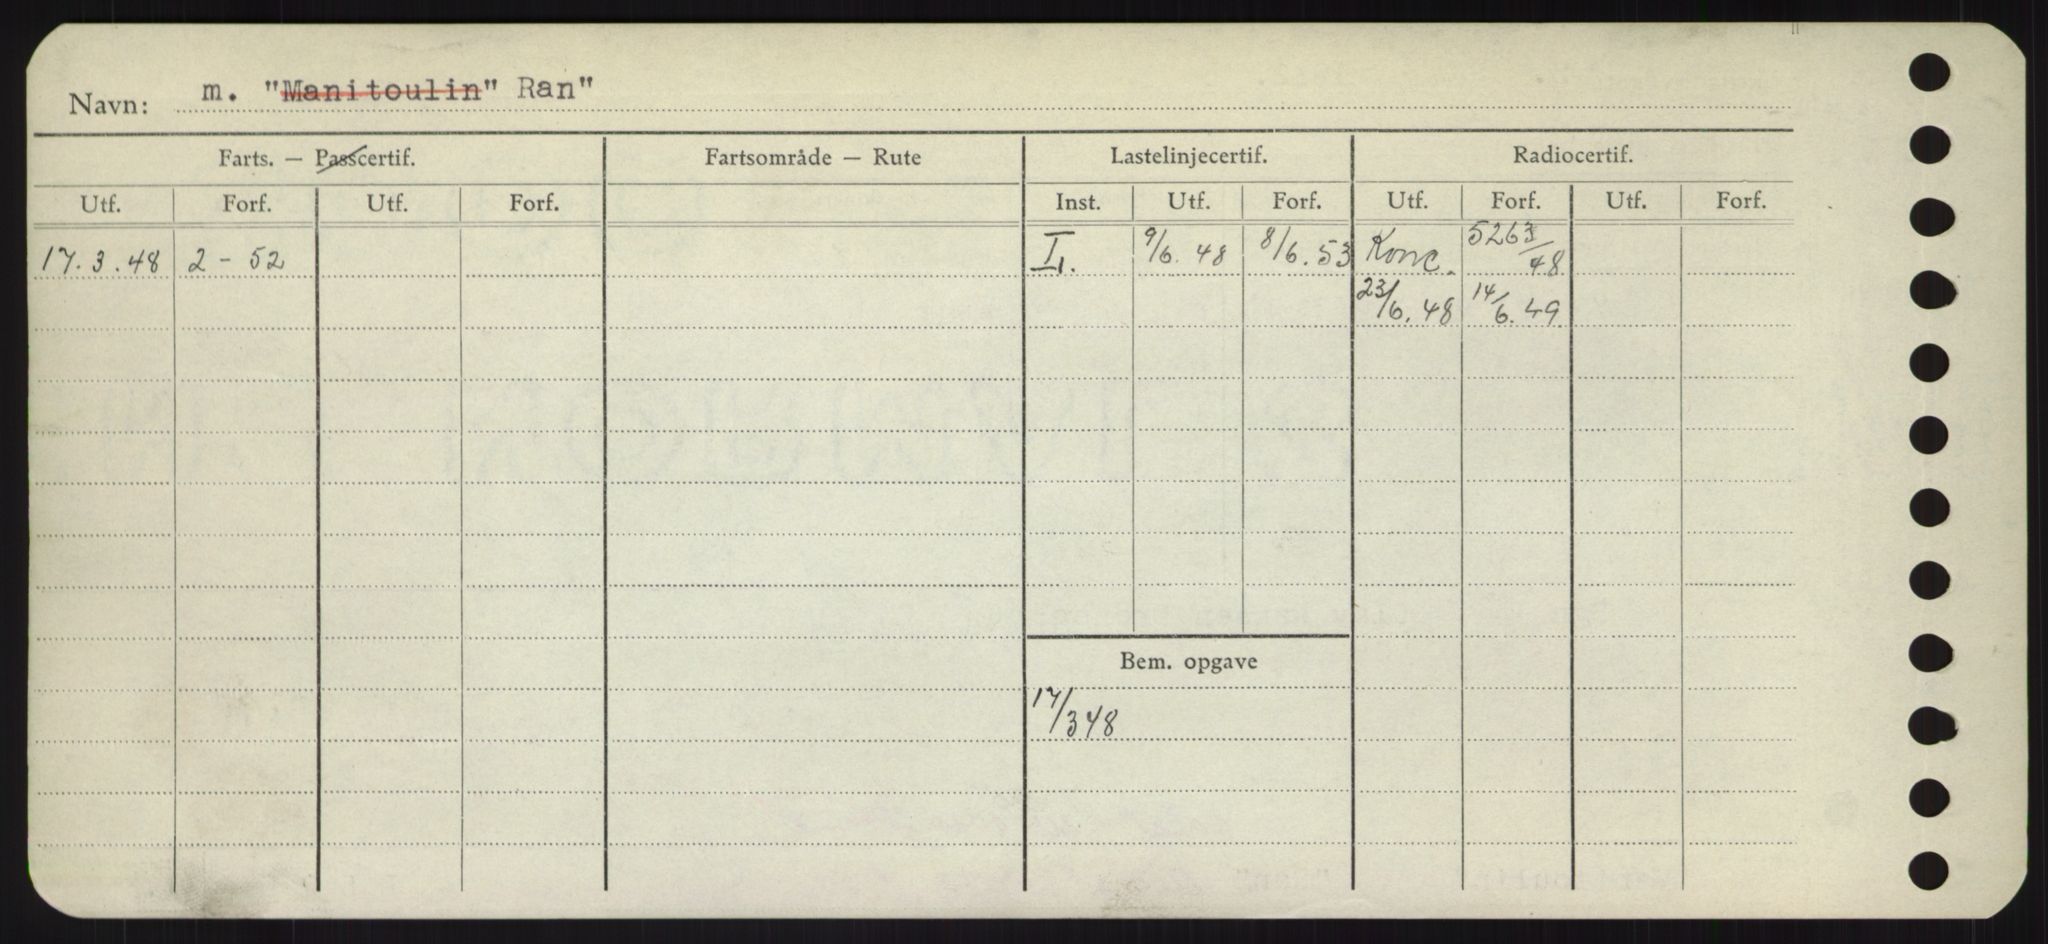 Navn: m. "Manitoulin" Ran"
Farts. — Passcertif. Fartsområde — Rute Lastelinjecertif. Radiocertif.
Utf. Forf. Utf. Forf. Inst. Utf. Forf. Utf. Forf. Utf. Forf.
17.3.48 2 - 52 I. 9/6. 48 8/6. 53 Konc. 5263/48
23/6. 48 14/6. 49
Bem. opgave
17/348